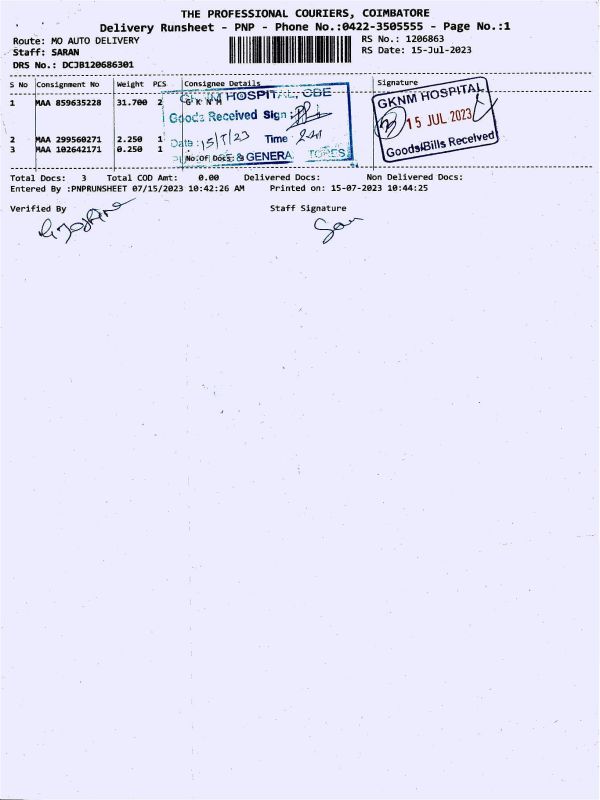 THE PROFESSIONAL COURIERS, COIMBATORE
Delivery Runsheet - PNP - Phone No.:0422-3505555 - Page No.:1
Route: MO AUTO DELIVERY
RS No.: 1206863
Staff: SARAN
RS Date: 15-Jul-2023
DRS No.: DCJB120686301
S No Consignment No Weight PCS Consignee Details Signature
1 MAA 859635228 31.700 2 G K N M
2 MAA 299560271 2.250 1
3 MAA 102642171 0.250 1
HOSPITAL, CBE
Goods Received Sign :
Date : 15/7/23 Time :
No.Of Docs: & GENERA STORES
GKNM HOSPITAL
15 JUL 2023
Goods/Bills Received
Total Docs: 3 Total COD Amt: 0.00 Delivered Docs: Non Delivered Docs:
Entered By :PNPRUNSHEET 07/15/2023 10:42:26 AM Printed on: 15-07-2023 10:44:25
Verified By Staff Signature